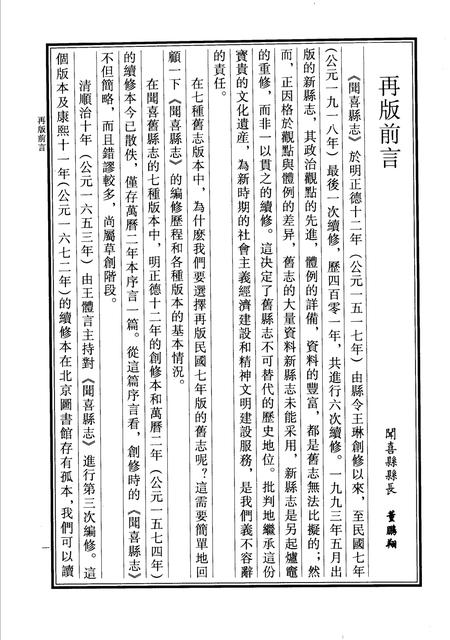 再版前言
聞喜縣縣長 董鵬翔
《聞喜縣志》於明正德十二年（公元一五一七年）由縣令王琳創修以來，至民國七年
（公元一九一八年）最後一次續修，歷四百零一年，共進行六次續修。一九九三年五月出
版的新縣志，其政治觀點的先進，體例的詳備，資料的豐富，都是舊志無法比擬的；然
而，正因格於觀點與體例的差异，舊志的大量資料新縣志未能采用，新縣志是另起爐竈
的重修，而非一以貫之的續修。這决定了舊縣志不可替代的歷史地位。批判地繼承這份
寳貴的文化遺産，為新時期的社會主義經濟建設和精神文明建設服務，是我們義不容辭
的責任。
在七種舊志版本中，為什麽我們要選擇再版民國七年版的舊志呢？這需要簡單地回
顧一下《聞喜縣志》的編修歷程和各種版本的基本情况。
在聞喜舊縣志的七種版本中，明正德十二年的創修本和萬曆二年（公元一五七四年）
的續修本今已散佚，僅存萬曆二年本序言一篇。從這篇序言看，創修時的《聞喜縣志》
不但簡略，而且錯謬較多，尚屬草創階段。
清順治十年（公元一六五三年）由王體言主持對《聞喜縣志》進行第三次編修。這
個版本及康熙十一年（公元一六七二年）的續修本在北京圖書館存有孤本，我們可以讀
再版前言
一